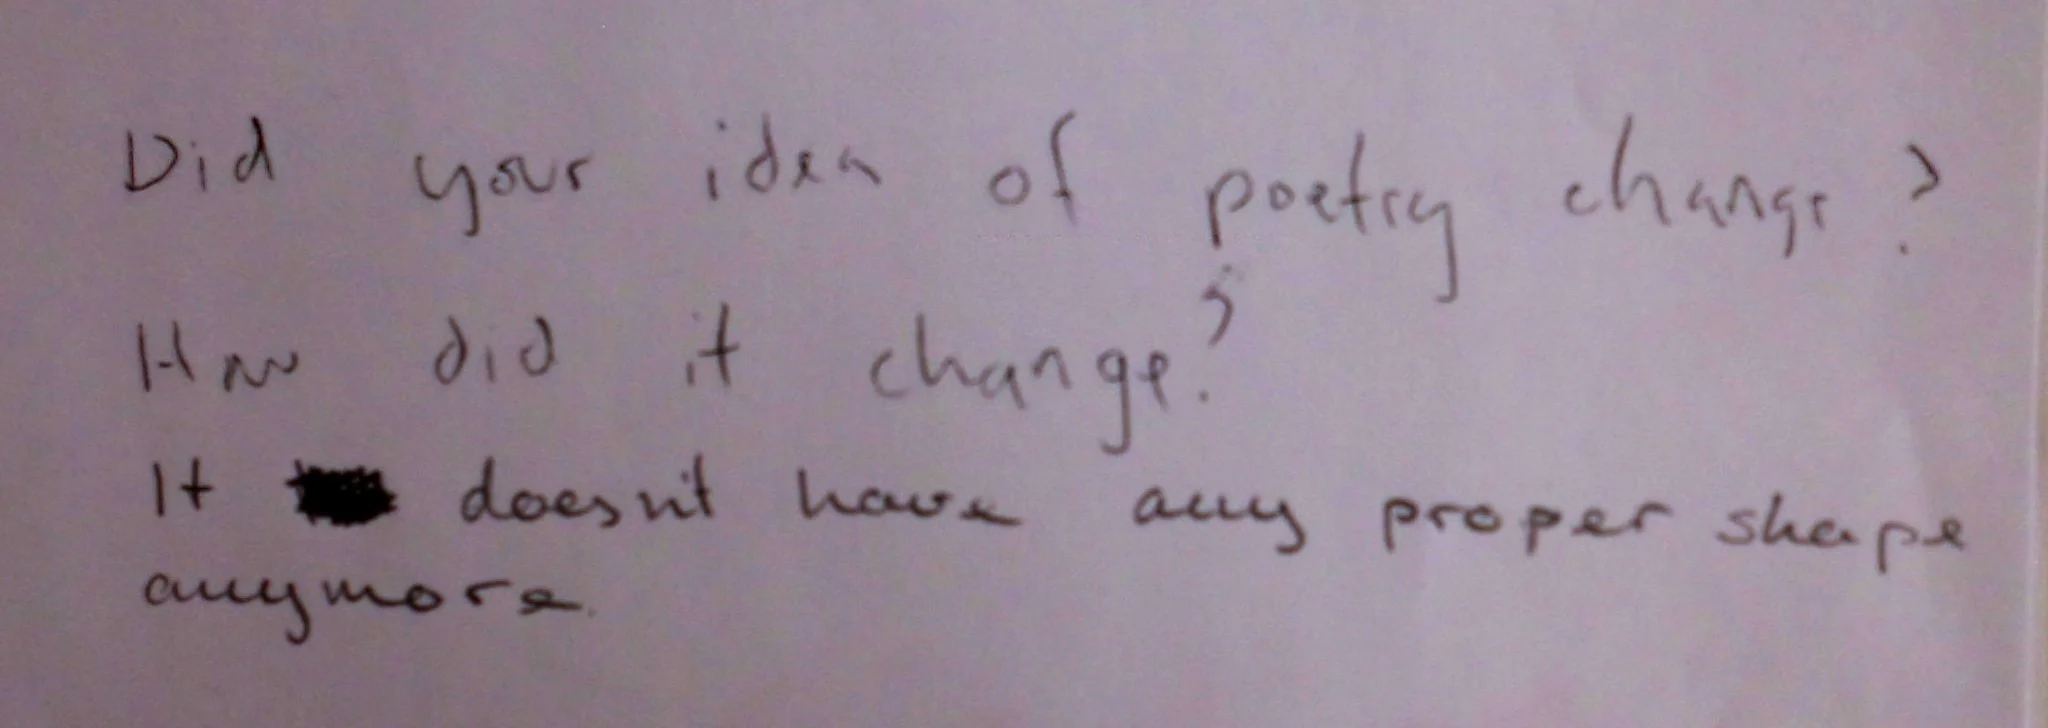 Did your idea of poetry change?
How did it change?
It doesn't have any proper shape
anymore.